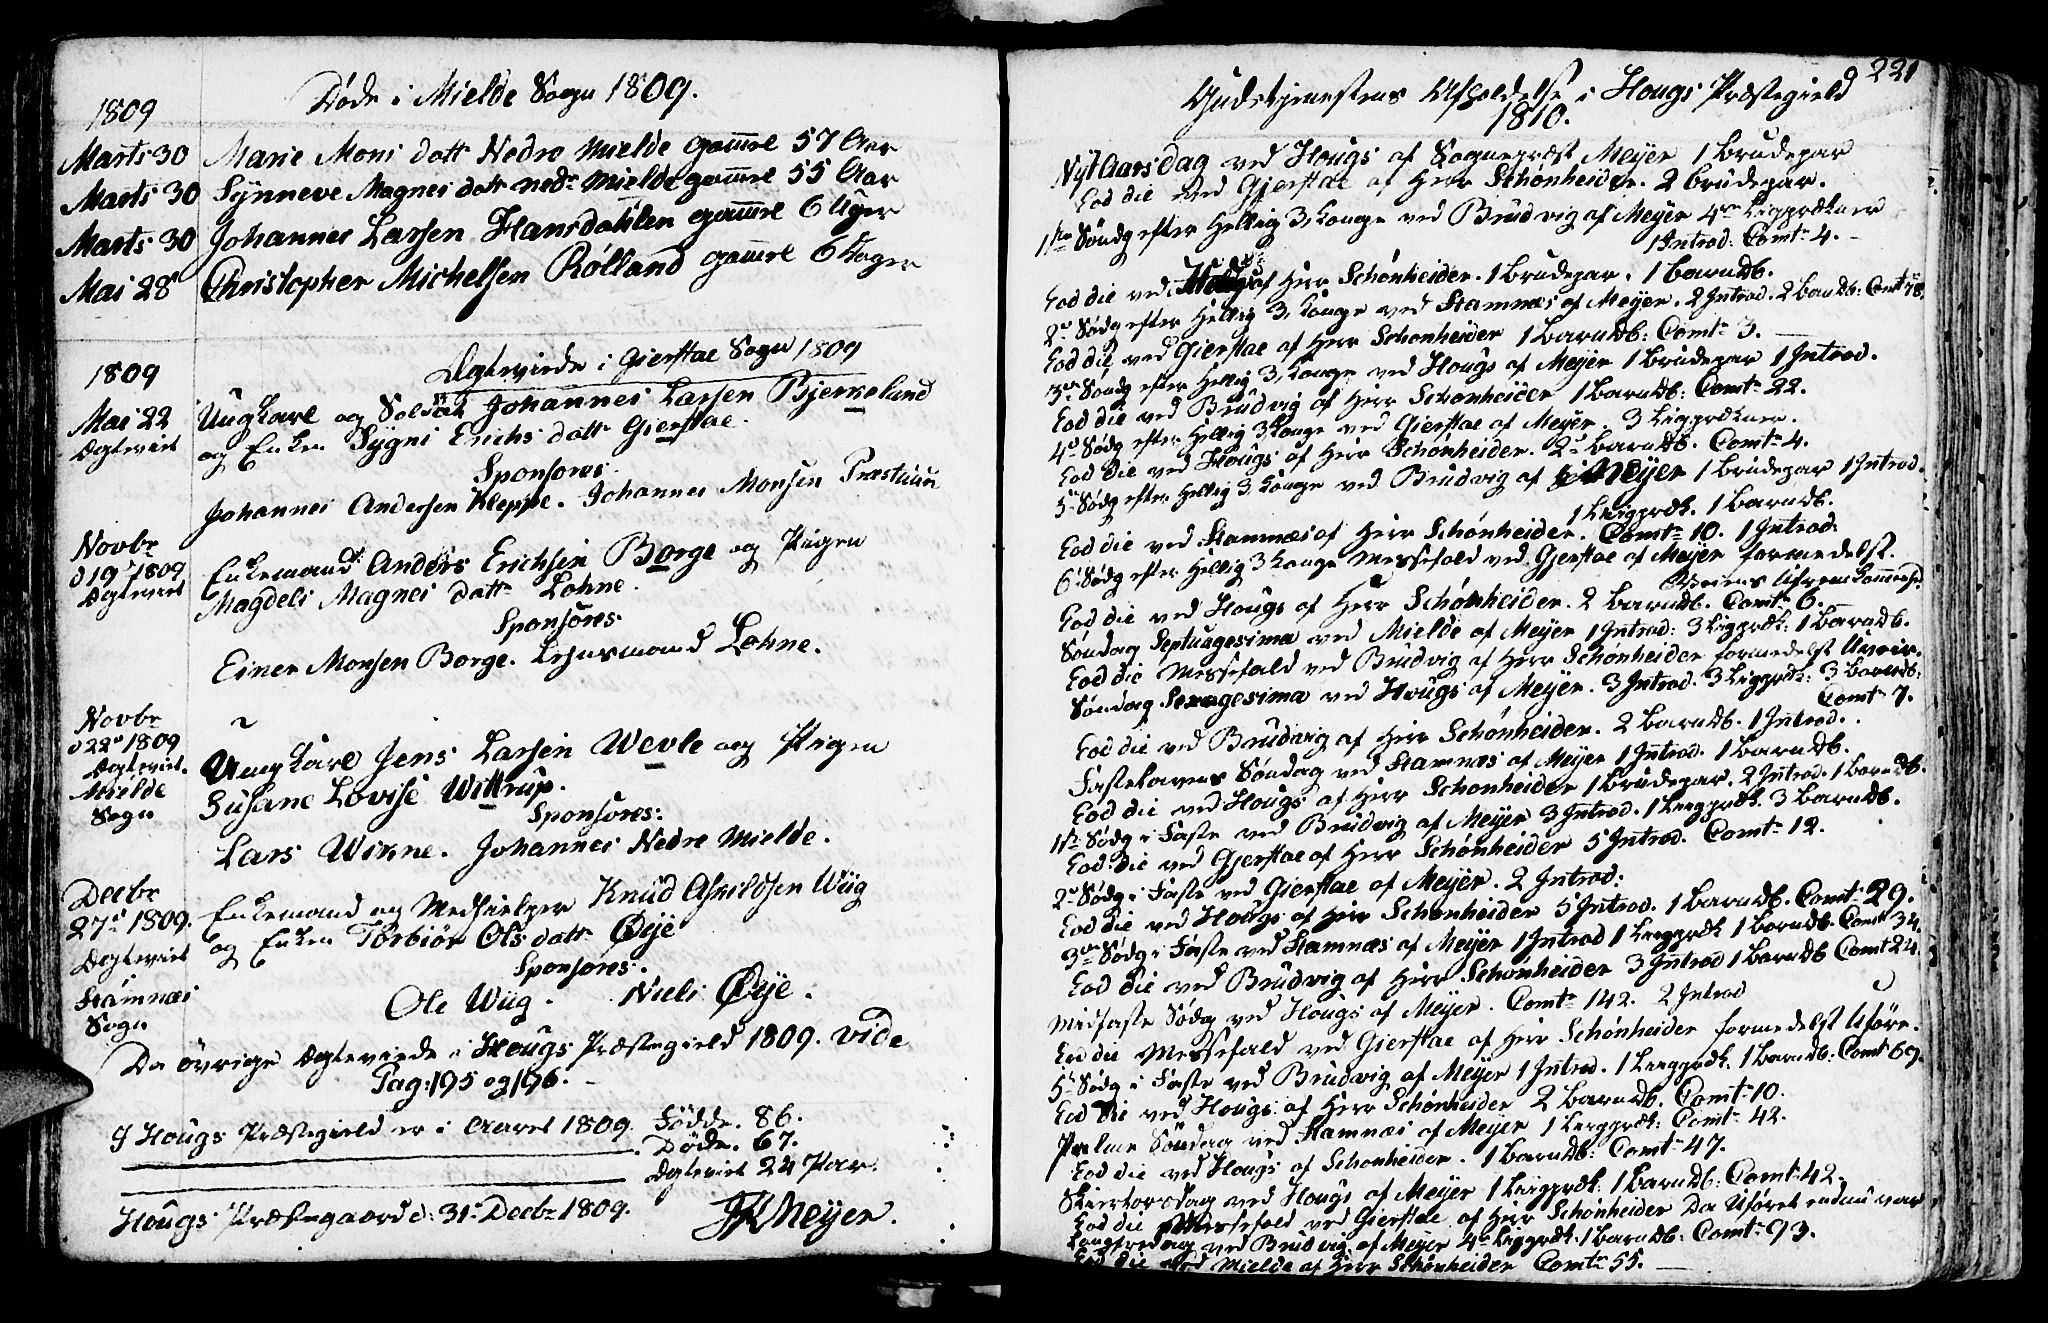 Døde i Mielde Sogn 1809.
1809
Marts 30 Marie Mons datt Nedre Mielde gammel 57 Aar
Marts 30 Synneve Magnes datt Nedr Mielde gammel 55 Aar
Marts 30 Johannes Larsen Hansdahlen gammel 6 Uger
Mai 28 Christopher Michelsen Rølland gammel 6 Dager
1809 Ægteviede i Gierstae Sogn 1809
Mai 22 Ungkarl og Soldat Johannes Larsen Bjerkelund
Ægteviet og Enken Sygni Erichs datt Gierstae.
Sponsores.
Johannes Andersen Kleppe. Johannes Monsen Præstuun
Novbr
d 19 1809 Enkemand Anders Erichsen Borge og Pigen
Ægteviet Magdeli Magnes datt Lohne.
Sponsores
Einer Monsen Borge. Lehnsmand Lohne.
Novbr
d 22 1809
Ægteviet. Ungkarl Jens Larsen Wevle og Pigen
Mielde Susane Lovise Wittrup.
Sogn Sponsores:
Lars Wikne. Johannes Nedre Mielde.
Decbr
27 1809. Enkemand og Medhielper Knud Askildsen Wiig
Ægteviet og Enken Torbiør Ols datt Øye
Stamnæs Sponsores.
Sogn Ole Wiig. Niels Øye.
De øvrige Ægteviede i Hougs Præstegield 1809. vide
Pag: 195 og 196.
I Hougs Præstegield er i Aaret 1809. Fødde. 86.
Døde. 67.
Ægteviet 24 Par.
Hougs Præstegaard d: 31 Decbr 1809. Meyer.
221
Gudstjenestens Afholdelse i Hougs Præstegield
1810.
Nyt Aarsdag ved Hougs af Sognepræst Meyer 1 Brudepar
Eod die ved Gjerstae af Herr Schønheider. 2 Brudepar.
1ste Søndg efter Hellig 3 Konge ved Brudvig af Meyer 4 Ligprækner
1 Introd: Comt 4.
Eod die ved af Herr Schønheider. 1 Brudepar. 1 Barndb.
2 Sødg efter Hellig 3 Konge ved Stamnæs af Meyer. 2 Introd. 2 Barndb: Comt 78.
Eod die ved Gierstae af Herr Schønheider 1 Barndb: Comt 3.
3 Søndg efter Hellig 3 Konge ved Hougs af Meyer 1 Brudepar 1 Introd.
Eod die ved Brudvig af Herr Schønheider 1 Barndb: Comt 22.
4 Sødg efter Hellig 3 Konge ved Gierstae af Meyer. 3 Ligprækner.
Eod die ved Hougs af Herr Schønheider. 2 Barndb. Comt 4.
5 Sødg efter Hellig 3 Konge ved Brudvig af Meyer 1 Brudepar 1 Introd.
1 Liigpræk. 1 Barndb.
Eod die ved Stamnæs af Herr Schønheider. Comt 10. 1 Introd.
6 Sødg efter Hellig 3 Konge Messefald ved Gjerstae af Meyer formedelst
Veiens Ufremkommeligh.
Eod die ved Hougs af Herr Schønheider. 2 Barndb. Comt 6.
Søndag Septuagesima ved Mielde af Meyer 1 Introd: 3 Ligpræk: 1 Barndb.
Eod die Messefald ved Brudvig af Herr Schønheider formedelst Uveir.
Søndag Sexagesima ved Hougs af Meyer. 3 Introd. 3 Ligpræk: 3 Barndb:
Comt 7.
Eod die ved Brudvig af Herr Schønheider. 2 Barndb. 1 Introd.
Fastelavens Søndag ved Stamnæs af Meyer 1 Introd. 1 Barndb.
Eod die ved Hougs af Herr Schønheider 1 Brudepar. 2 Introd. 1 Barndb.
1ste Sødg i Faste ved Brudvig af Meyer 3 Introd. 1 Liigpræk. 3 Barndb.
Eod: die ved Gjerstae af Herr Schønheider 5 Introd. Comt 12.
2 Sødg i Faste ved Gierstae af Meyer. 2 Introd:
Eod die ved Hougs af Herr Schønheider 5 Introd. 1 Barndb. Comt 29.
3 Sødg i Faste ved Stamnæs af Meyer 1 Introd 1 Liigpræk 1 Barndb. Comt 34.
Eod die ved Brudvig af Herr Schønheider 3 Introd 1 Barndb Comt 24.
Midfaste Sødg ved Hougs af Meyer. Comt 142. 2 Introd
Eod die Messefald ved Gierstae af Herr Schønheider formedelst Uføre.
5 Sødg i Faste ved Brudvig af Meyer 1 Introd. 1 Liigpræk. 1 Barndb: Comt 69.
Eod die ved Hougs af Herr Schønheider 2 Barndb. Comt 10.
Palme Søndag ved Stamnæs af Meyer 1 Liigpræk: Comt 42.
Eod die ved Hougs af Schønheider. 1 Barndb: Comt 47.
Skiertorsdag ved Hougs af Meyer 1 Liigpræk: 1 Barndb: Comt 42.
Eod die Messefald ved Gierstae af Herr Schønheider Da Uføret endnu var
Langfredag ved Brudvig af Meyer 4 Liigpræk. 1 Barndb: Comt 93.
Eod die ved Mielde af Herr Schønheider Comt 55.